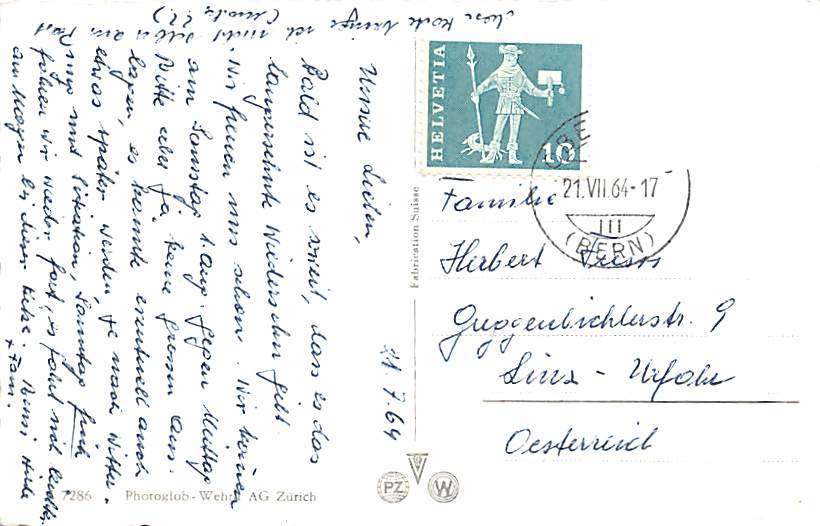 Unsere Lieben,
Bald ist es soweit, dass es das
langersehnte Wiedersehn gilt.
Wir freuen uns schon. Wir kommen
am Samstag 1. Aug. gegen Mittag
Bitte aber ja keine grossen Aus-
lagen, es könnte eventuell auch
etwas später werden, je nach Witter-
ung und Situation, Sonntag früh
fahren wir wieder fort, es fährt sich leichter
am Morgen bei dieser Hitze.
+ Fam.
diese Karte bringe ich nicht selber am Post
21.7.64
HELVETIA
10
21.VII.64-17
III
(BERN)
Fabrication Suisse
Familie
Herbert
Guggenbichlerstr. 9
Linz - Urfahr
Oesterreich
7286 Photoglob-Wehrli AG Zürich
PZ W